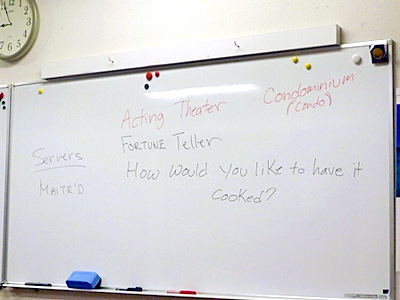 Acting Theater
Condominium
(Condo)
FORTUNE Teller
Servers
MAITR'D
How would you like to have it
cooked?